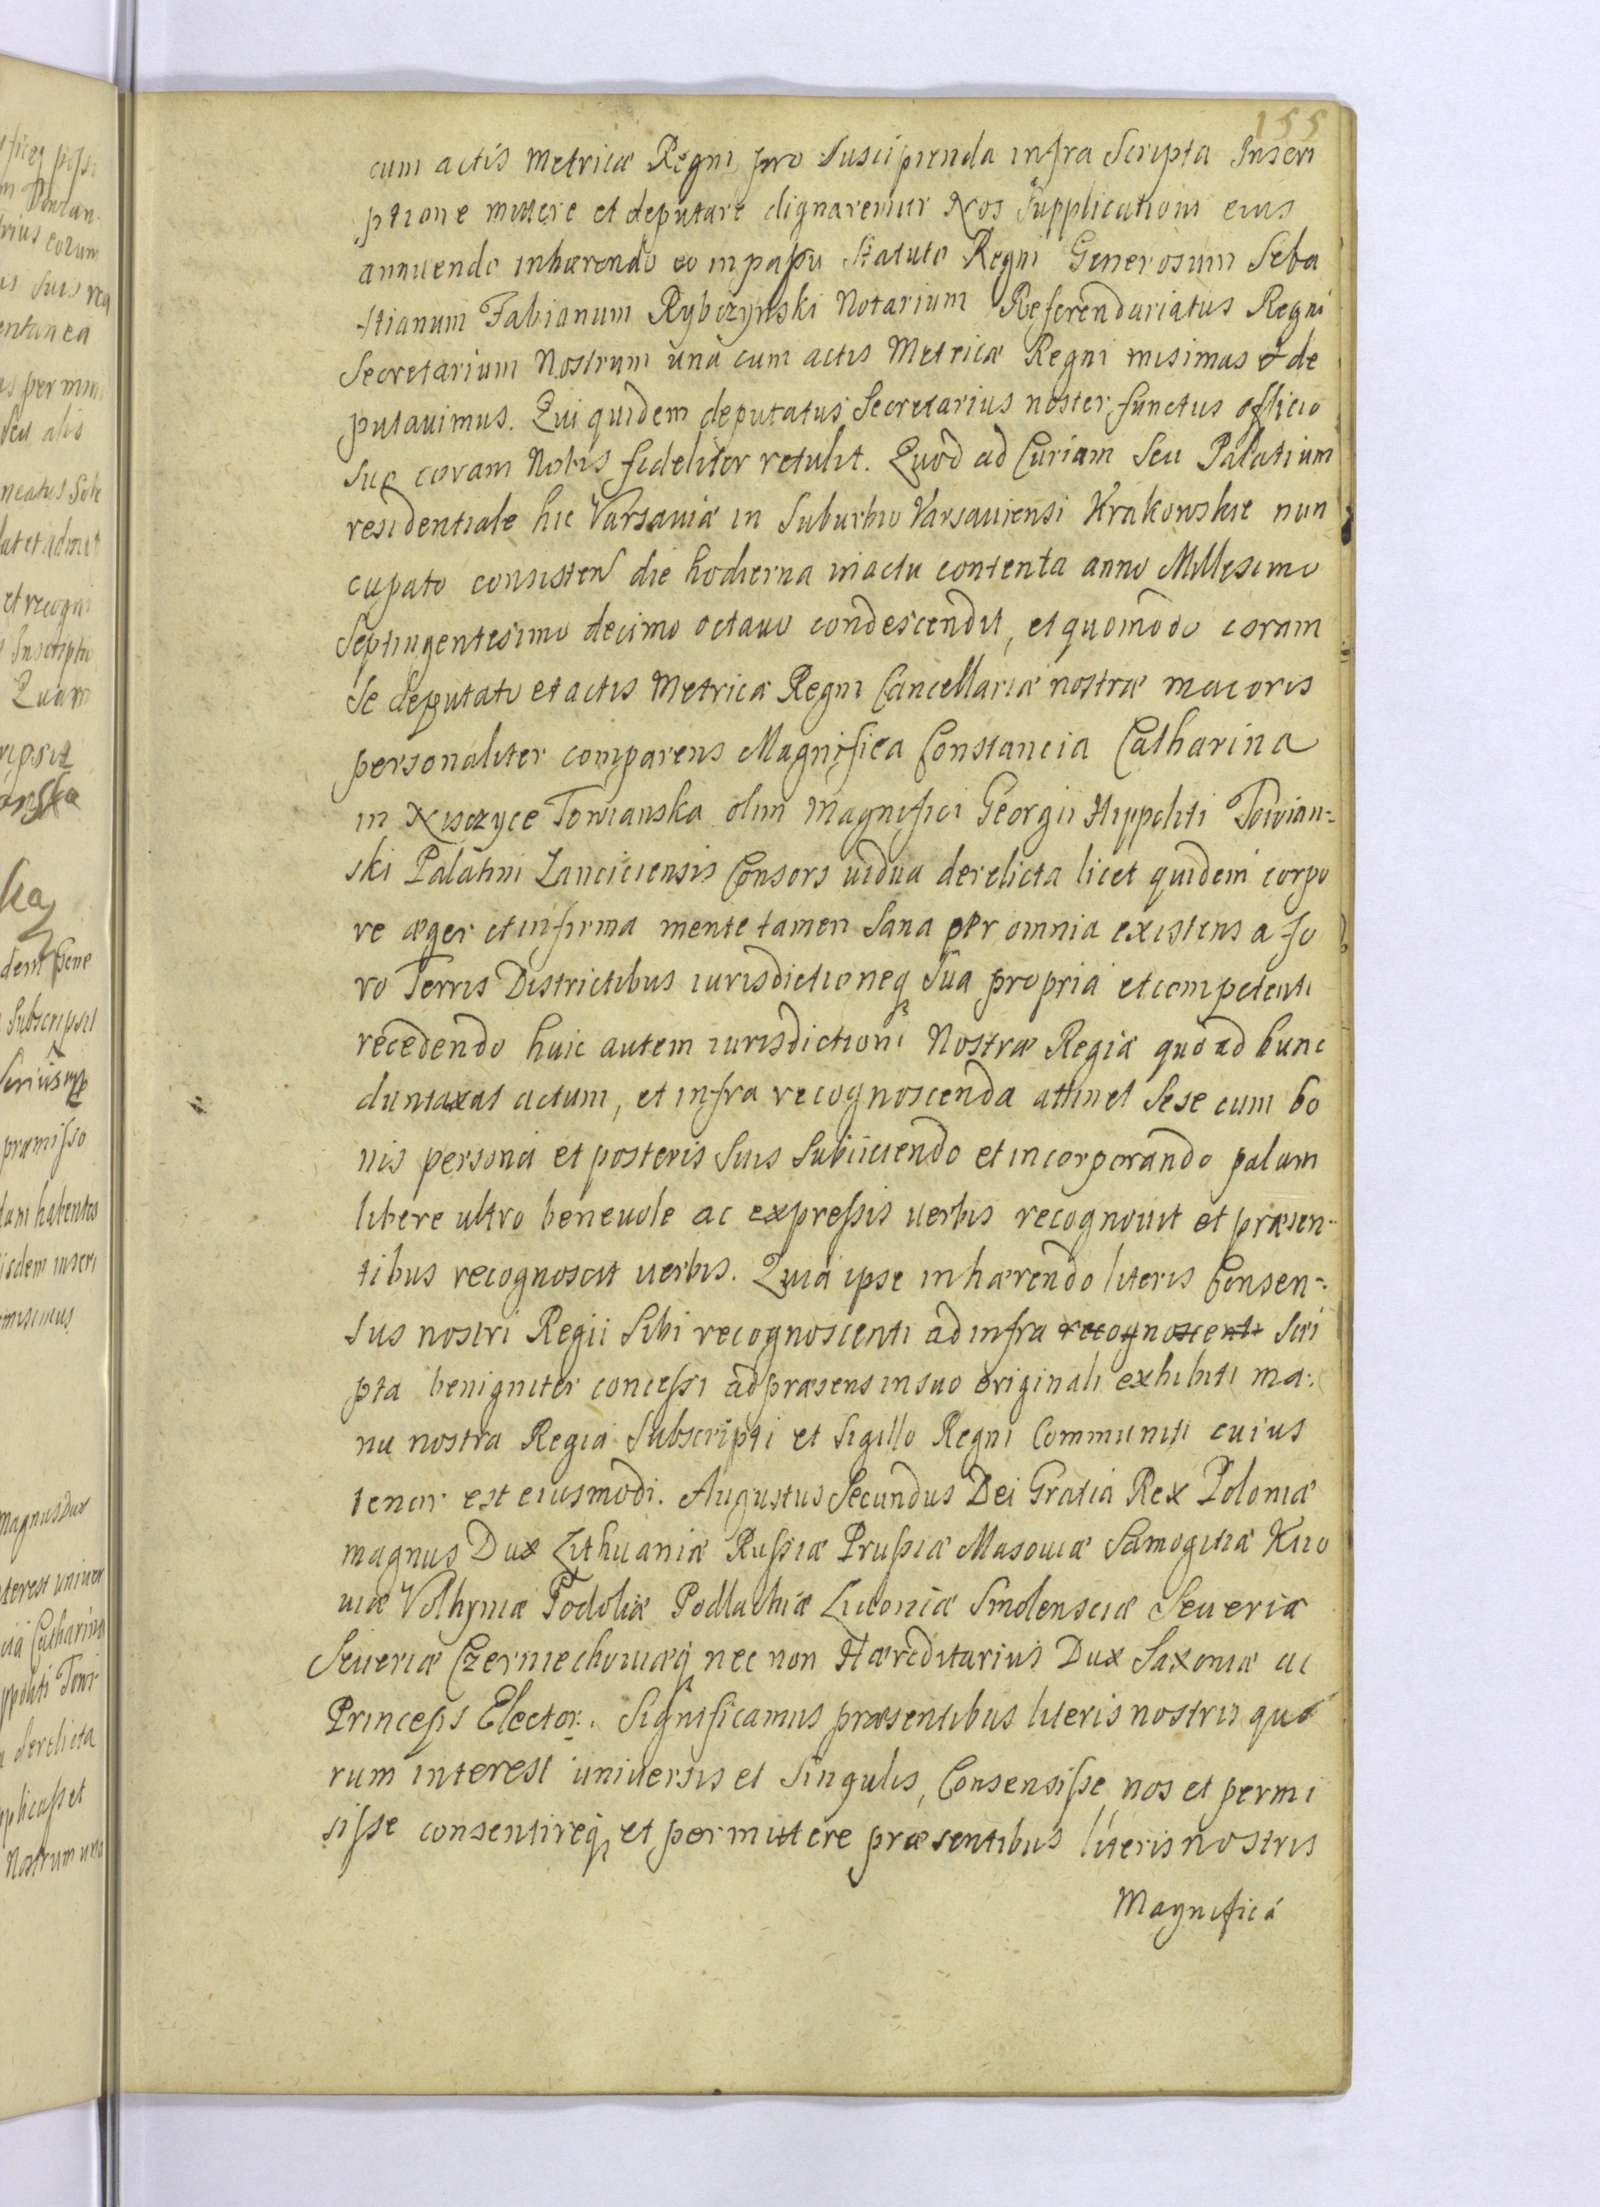 155
cum actis Metricæ Regni pro Suscipienda infra Scripta Inscri
ptione mittere et deputare dignaremur Nos Supplicationi eius
annuendo inhærendo eo in passu Statuto Regni Generosum Seba
stianum Fabianum Rybczynski Notarium Referendariatus Regni
Secretarium Nostrum una cum actis Metricæ Regni misimus & de
putauimus. Qui quidem deputatus Secretarius noster functus officio
suo coram Nobis fideliter retulit. Quod ad Curiam Seu Palatium
residentiale hic Varsauiæ in Suburbio Varsauiensi Krakowskie nun
cupato consisten die hodierna in actu contenta anno Millesimo
Septingentesimo decimo octauo condescendit, et quomodo coram
Se deputato et actis Metricæ Regni Cancellariæ nostræ maioris
personaliter comparens Magnifica Constancia Catharina
in Nisczyce Towianska olim Magnifici Georgii Hippoliti Towian-
ski Palatini Lanciciensis Consors uidua derelicta licet quidem corpo
re æger et infirma mente tamen Sana per omnia existens a fo
ro Terris Districtibus iurisdictioneq Sua propria et competenti
recedendo huic autem iurisdictioni Nostræ Regiæ quo ad hunc
duntaxat actum, et infra recognoscenda attinet Sese cum bo
nis persona et posteris Suis Subiiciendo et incorporando palam
libere ultro beneuole ac expressis uerbis recognouit et præsen-
tibus recognoscit uerbis. Quia ipse inhærendo literis Consen-
sus nostri Regii Sibi recognoscenti ad infra recognoscenti Scri
pta benigniter concessi ad præsens in suo originali exhibiti ma-
nu nostra Regia Subscripti et Sigillo Regni Communiti cuius
tenor est eiusmodi. Augustus Secundus Dei Gratia Rex Poloniæ
magnus Dux Lithuaniæ Russiæ Prussiæ Masouiæ Samogitiæ Kiio
uiæ Volhyniæ Podoliæ Podlachiæ Liuoniæ Smolensciæ Seueriæ
Seueriæ Czerniechouiæq nec non Hæreditarius Dux Saxoniæ ac
Princeps Elector. Significamus præsentibus literis nostris quo
rum interest uniuersis et Singulis, Consensisse nos et permi
sisse consentireq et permittere præsentibus literis nostris
Magnificá